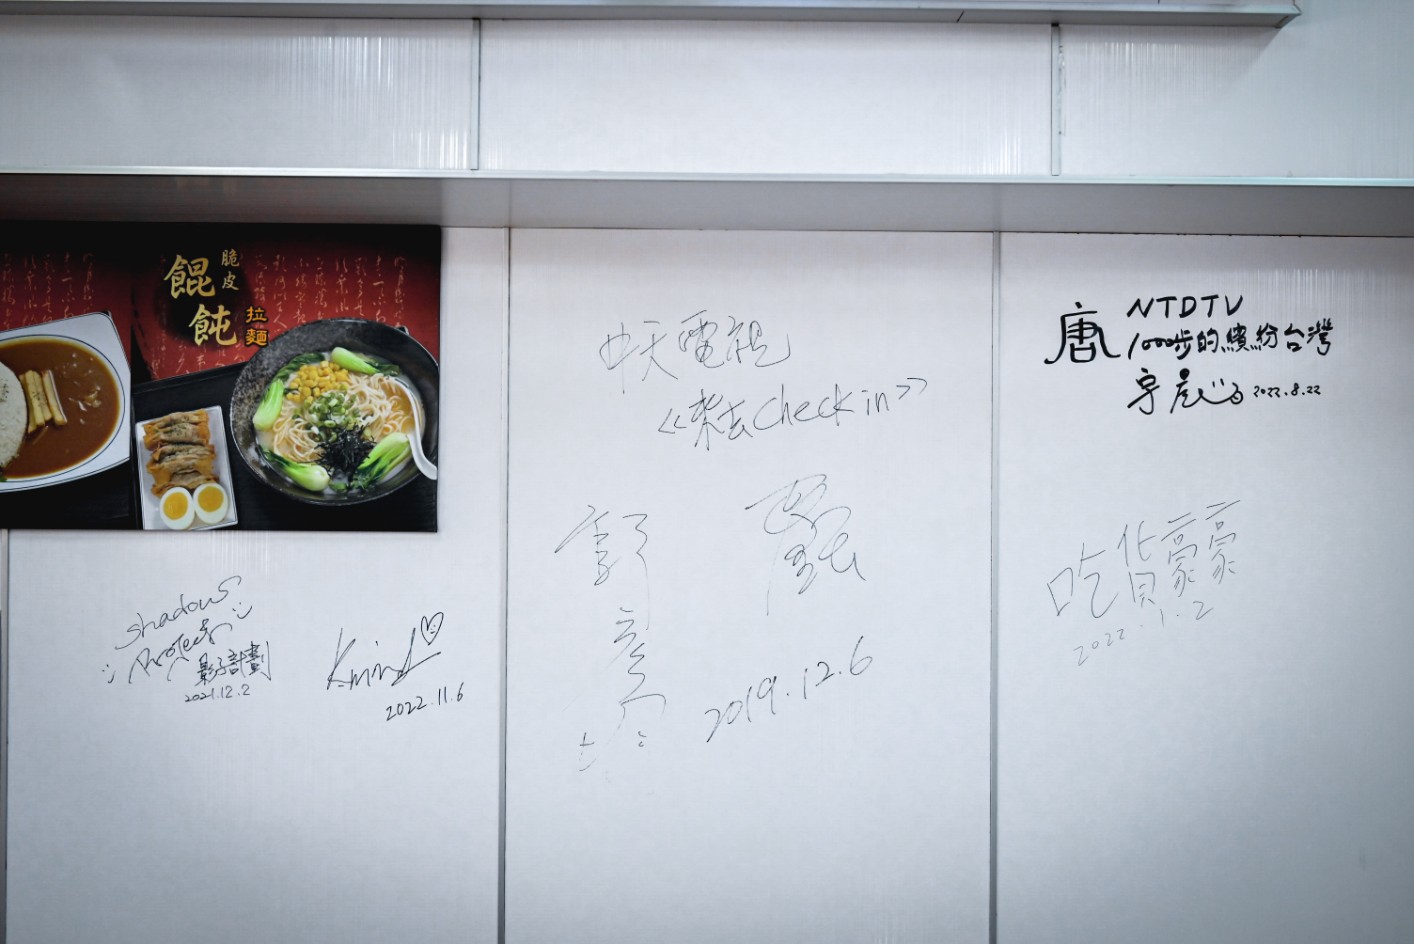 脆皮
餛飩
拉麵
shadows
Project
影子計劃
2021.12.2
2022.11.6
中天電視
《來去Check in》
2019.12.6
唐
NTDTV
1000步的繽紛台灣
2022.8.22
吃貨豪豪
2022.1.2